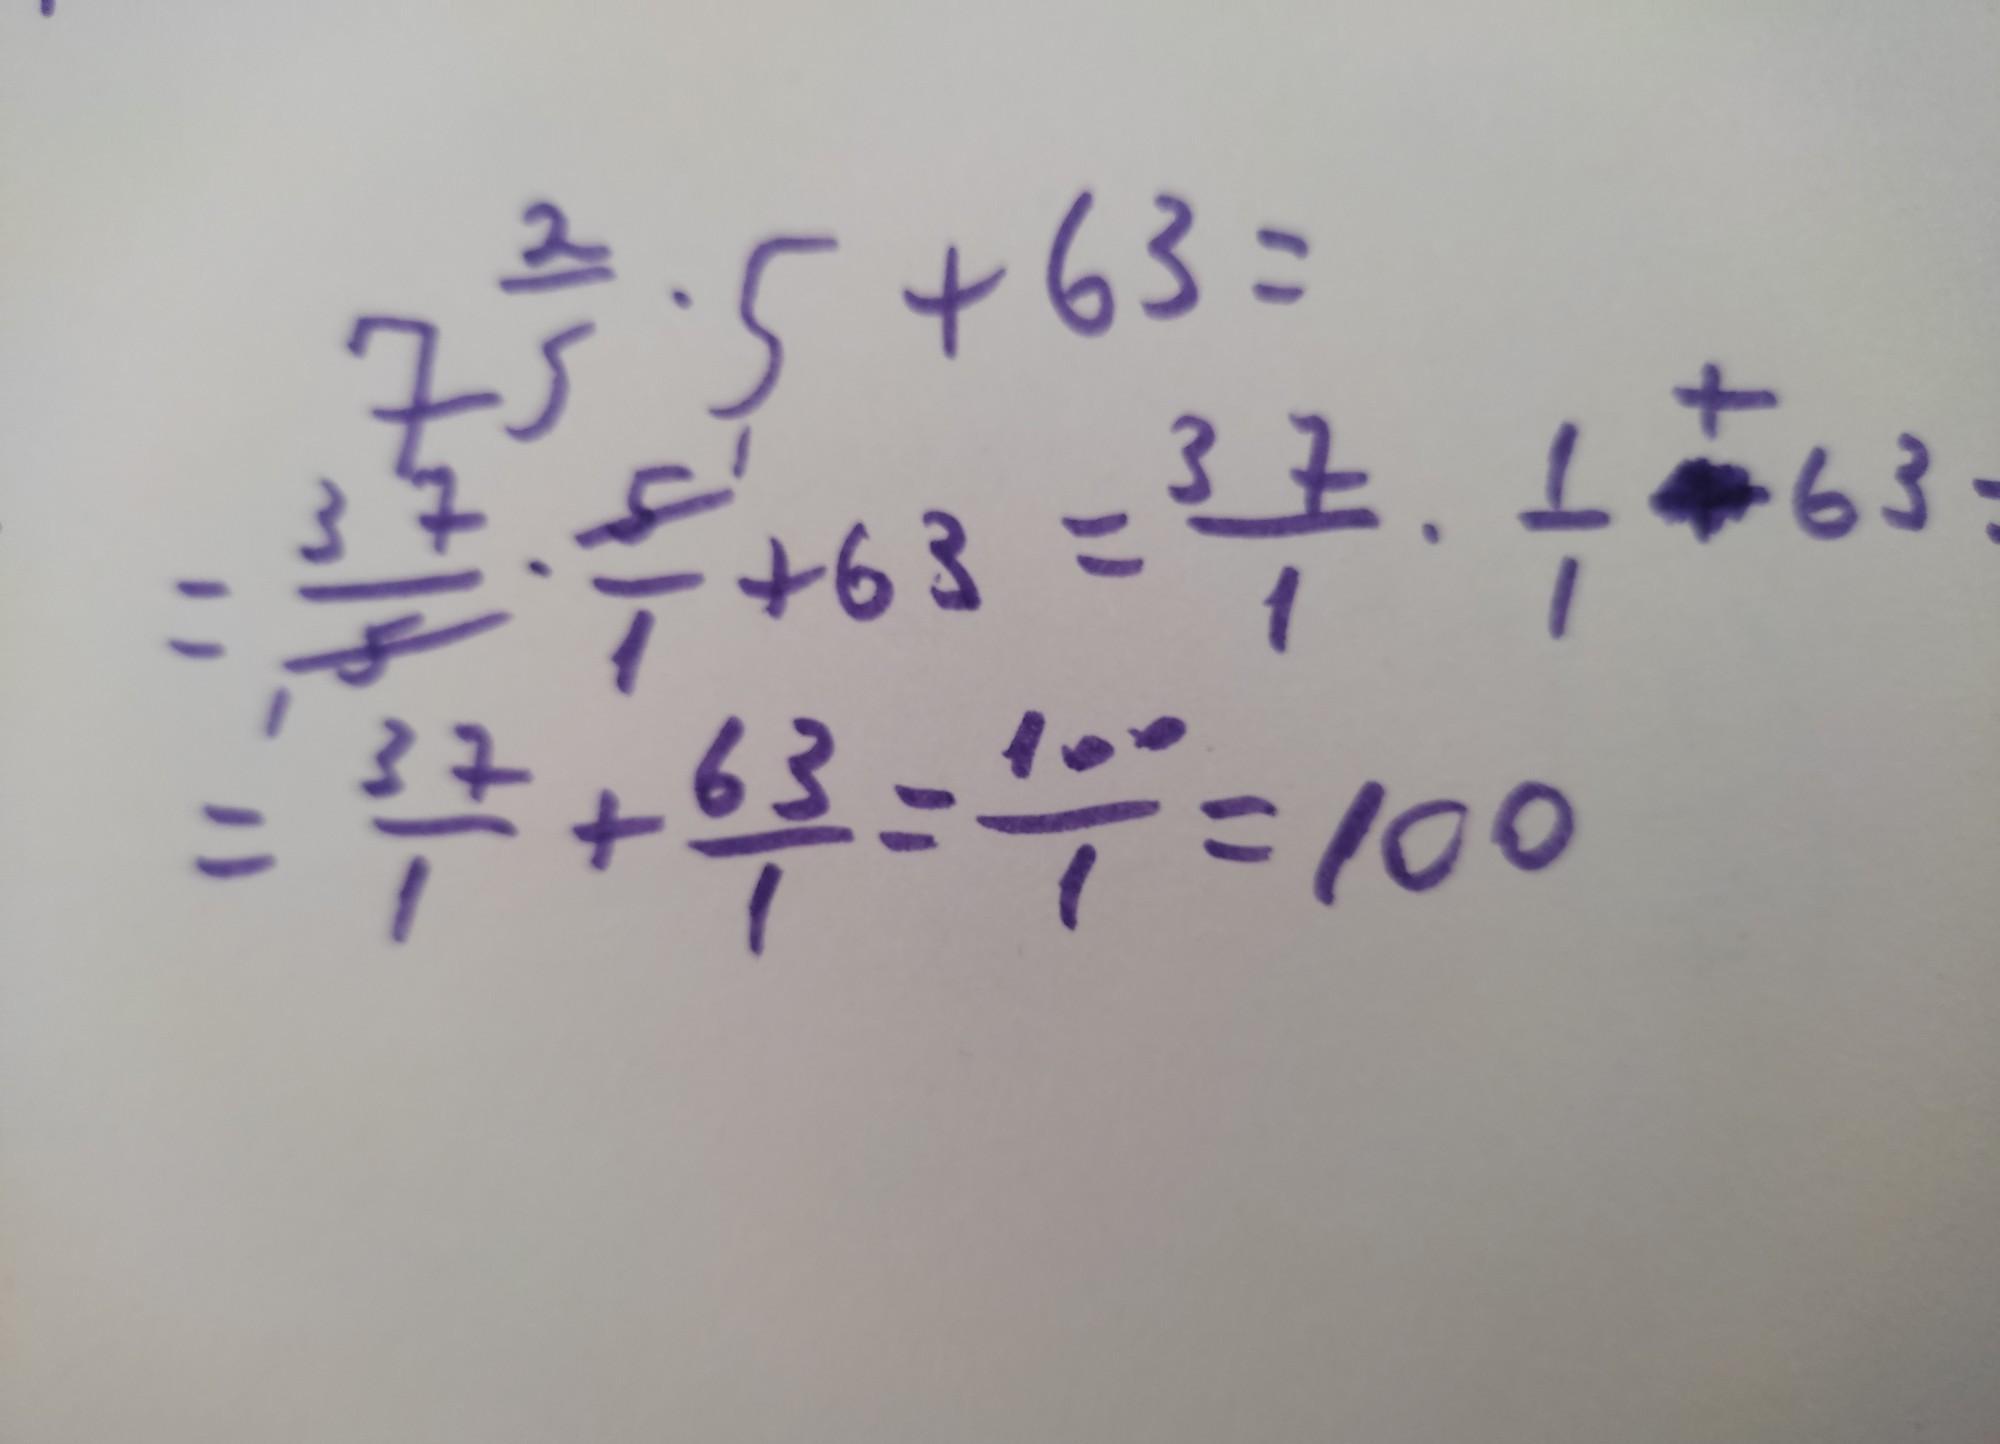 7 2/5 · 5 + 63 =
= 37/5 · 5/1 + 63 = 37/1 · 1/1 + 63 =
= 37/1 + 63/1 = 100/1 = 100